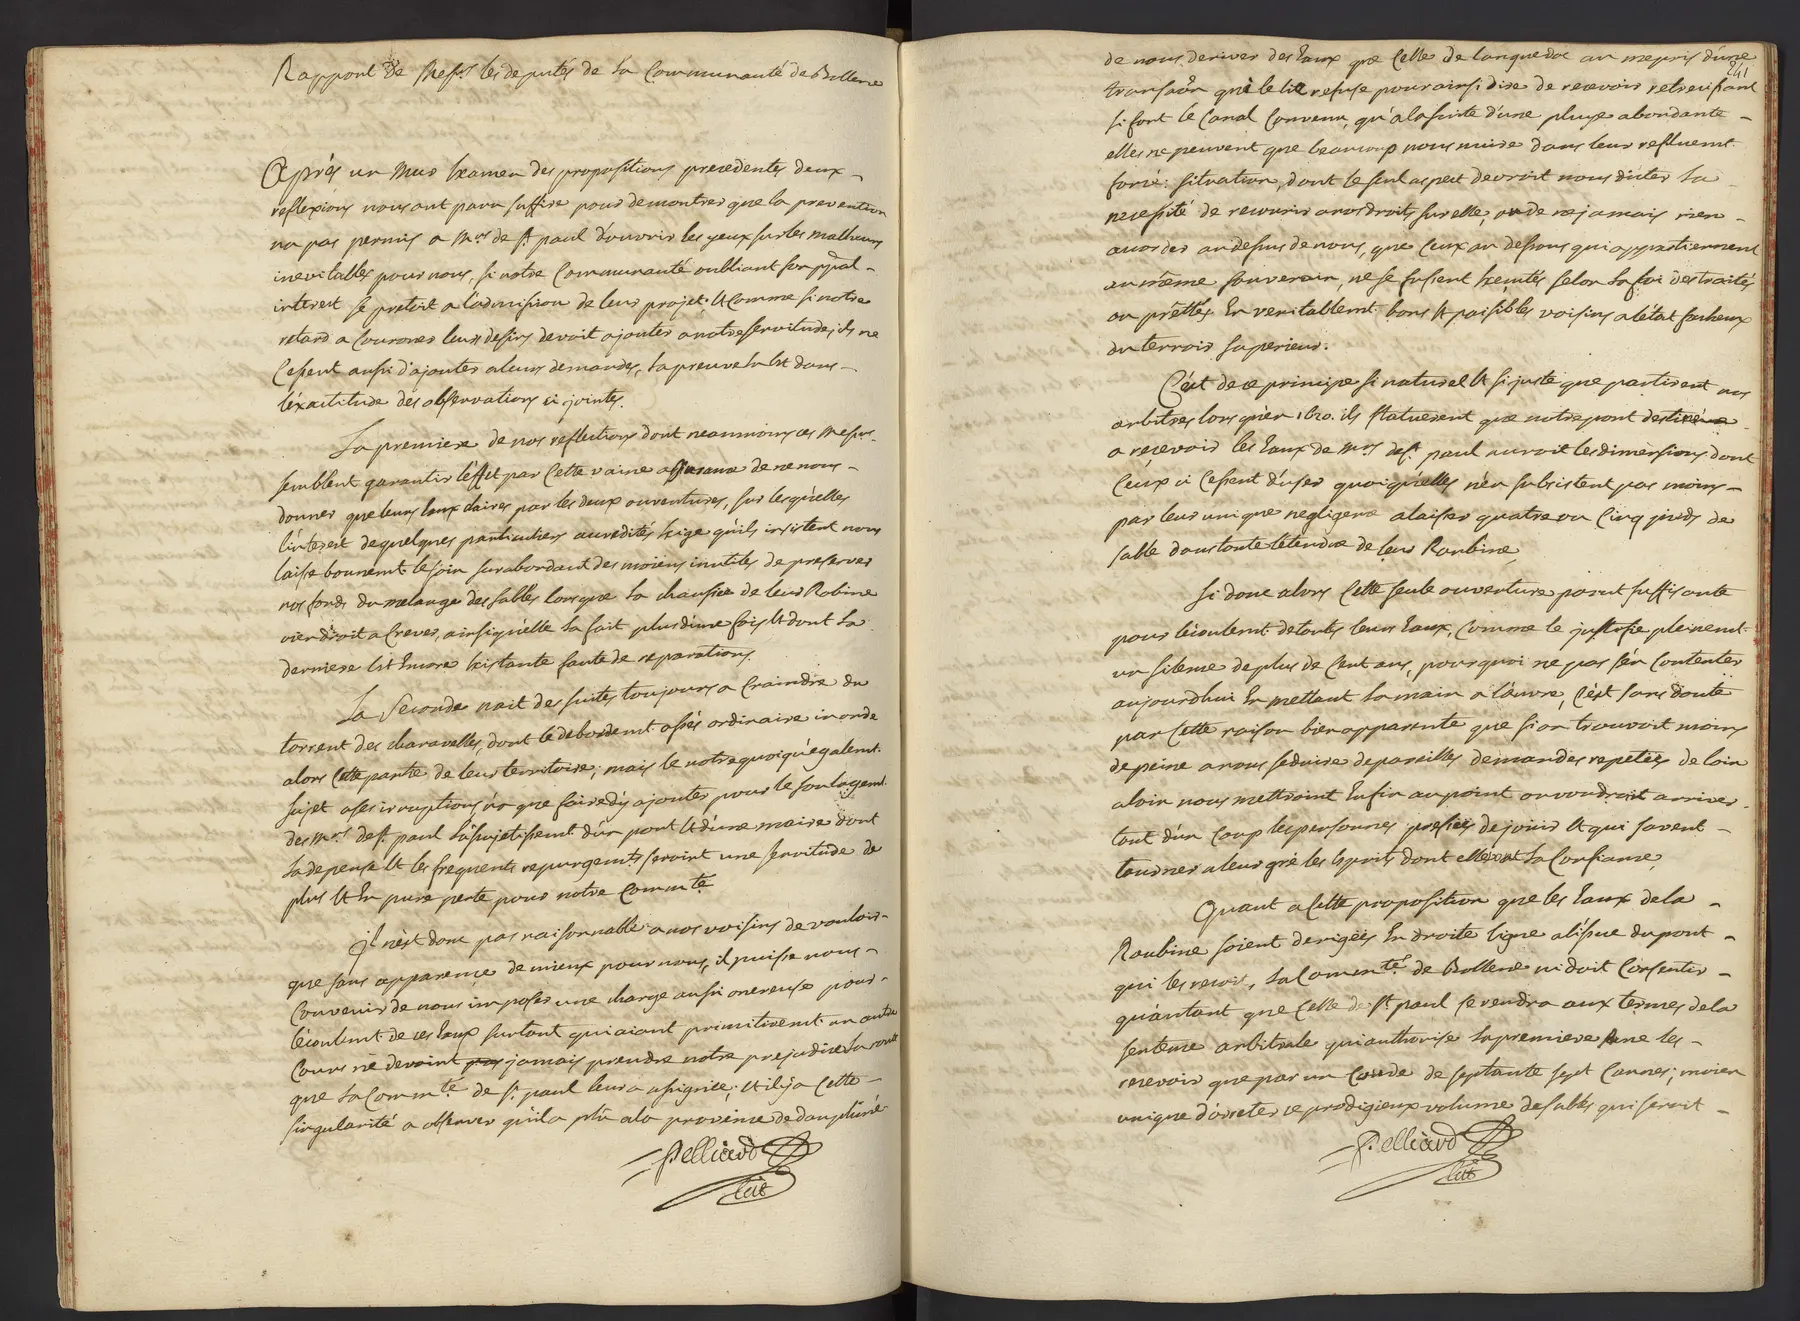 Rapport de Mess.rs les deputés de la Communauté de Bollene
Après un Mur Examen des propositions precedentes deux
reflexions nous ont paru suffire pour demontrer que la prevention
na pas permis a Mrs de St paul d'ouvrir les yeux sur les malheurs
inevitables pour nous, si notre Communauté oubliant son ppal
interest se pretoit a l'admission de leur projet; Et comme si notre
retard a Couroner leurs desirs devoit ajouter a notre servitude, ils ne
Cessent aussi d'ajouter a leurs demandes, la preuve En Est dans
l'exactitude des observations ci jointes.
La premiere de nos reflections dont neanmoins ces Messrs
semblent garantir l'effet par Cette vaine assurance de ne nous
donner que leurs Eaux claires par les deux ouvertures, sur lesquelles
l'interest de quelques particuliers accredités Exige qu'ils insistent nous
laisse bonnemt. le soin surabondant des moïens inutiles de preserver
nos fonds du melange des sables lorsque la chaussée de leur Robine
viendroit a Crever, ainsi qu'elle la fait plus d'une fois Et dont la
derniere Est Encore Existante faute de reparations.
La Seconde nait des suites toujours a Craindre du
torrent des charavelles, dont le debordemt. assés ordinaire inonde
alors Cette partie de leur territoire; mais le notre quoiqu'egalemt.
sujet a ses irruptions n'a que faire d'y ajouter pour le soulagemt.
des Mrs. de St. paul l'assujetissemt. d'un pont Et d'une maire dont
la depense Et les frequents repurgemts. seroint une servitude de
plus Et En pure perte pour notre Commté.
Il n'est donc pas raisonnable a nos voisins de vouloir
que sans apparence de mieux pour nous, il puisse nous
Convenir de nous imposer une charge aussi onereuse pour
l'ecoulemt. de ces Eaux surtout qui aïant primitivemt. un autre
Cours ne devoint pas jamais prendre a notre prejudice la route
que la Commté. de St. paul leur a assignée; Et il y a Cette
singularité a observer qu'il a plu a la province de dauphiné
Pelliard
241
de nous deriver des Eaux que Celle de Languedoc au mepris d'une
qui le lie refuse pour ainsi dire de recevoir retrecissant
si fort le Canal Convenu, qu'a la suite d'une pluye abondante
elles ne peuvent que beaucoup nous nuire dans leur refluemt.
forcé: situation, dont le seul aspect devroit nous dicter la
necessité de recourir a nos droits sur elle, ou de ne jamais rien
accorder au dessus de nous, que Ceux au dessous qui appartiennent
au même souverain, ne se fussent Executés selon la foi des traités
ou prêttés En veritablemt. bons Et paisibles voisins a l'état facheux
du terroir superieur.
C'est de ce principe si naturel Et si juste que partirent nos
arbitres lorsqu'en 1620. ils statuerent que notre pont destiné
a recevoir les Eaux de Mrs de St. paul auroit les dimensions dont
Ceux ci Cessent d'user quoiqu'elles n'en subsistent pas moins
par leur unique negligence a laisser quatre ou Cinq pieds de
sable dans toute l'etendue de leur Roubine,
Si donc alors Cette seule ouverture parut suffisante
pour l'ecoulemt. de toutes leurs Eaux, comme le justifie pleinemt.
un silence de plus de Cent ans, pourquoi ne pas s'en Contenter
aujourdhui En mettant la main a l'œuvre, C'est sans doute
par Cette raison bien apparente que si on trouvoit moins
de peine a nous seduire de pareilles demandes repetées de loin
a loin nous mettroint Enfin au point ou voudroit arriver
tout d'un Coup les personnes pressées de jouir Et qui savent
tourner a leur gré les Esprits dont elles ont la Confiance,
Quant a Cette proposition que les Eaux de la
Roubine soient dirigées En droite ligne a l'issue du pont
qui les recoit, la Commté. de Bollene n'i doit Consentir
qu'autant que Celle de St. paul se rendra aux termes de la
sentence arbitrale qui authorise la premiere a ne les
recevoir que par un Coude de septante sept Cannes; moïen
unique d'arreter ce prodigieux volume de sables qui seroit
Pelliard